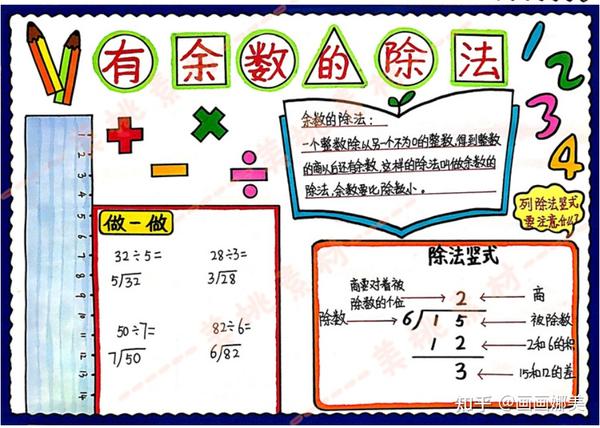 有余数的除法
1
2
3
4
余数的除法：
一个整数除以另一个不为0的整数，得到整数
的商以后还有余数，这样的除法叫做余数的
除法，余数要比除数小。
列除法竖式
要注意什么？
做一做
32÷5=
28÷3=
5√32
3√28
50÷7=
82÷6=
7√50
6√82
除法竖式
商要对着被
除数的个位
2
商
除数
6√15
被除数
12
2和6的积
3
15和12的差
知乎 @画画娜美